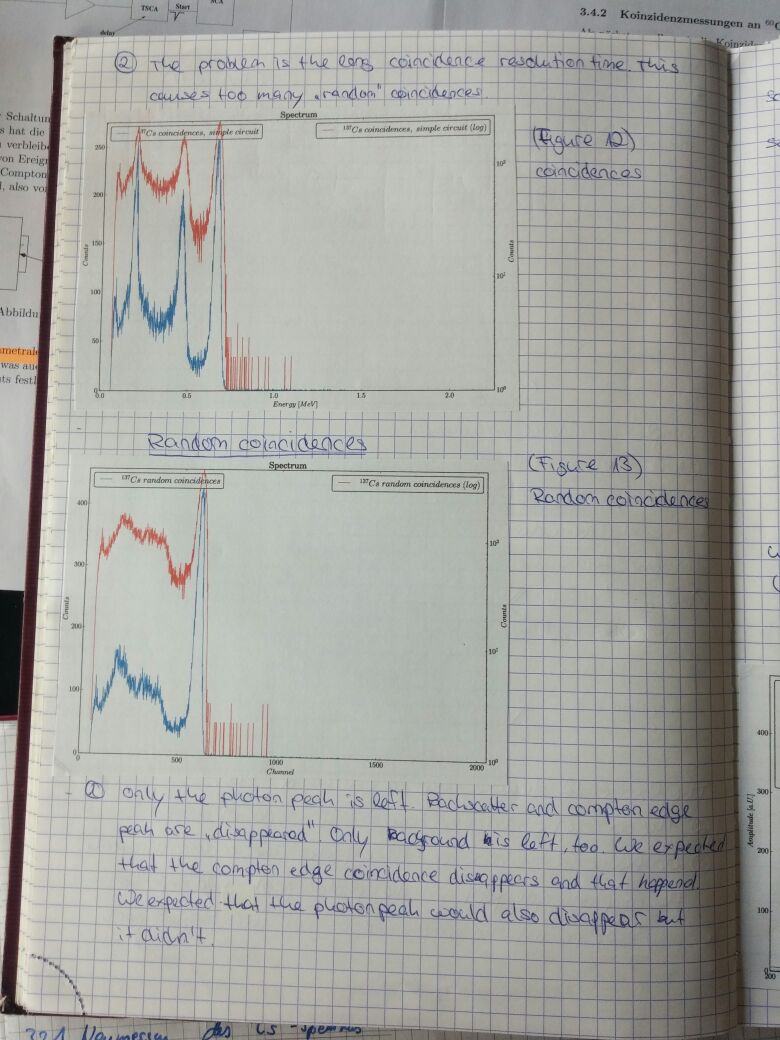 TSCA
Start
SCA
delay
3.4.2 Koinzidenzmessungen an ⁶⁰C
Koinzide
Schaltun
s hat die
verbleib
von Ereig
Compton
l, also vo
Abbildu
ametrale
was au
ts festl
② The problem is the long coincidence resolution time. This
causes too many „random" coincidences
Spectrum
¹³⁷Cs coincidences, simple circuit
¹³⁷Cs coincidences, simple circuit (log)
250
200
150
100
50
0
Counts
10²
10¹
10⁰
Counts
0.0 0.5 1.0 1.5 2.0
Energy [MeV]
(Figure 12)
coincidences
Random coincidences
Spectrum
¹³⁷Cs random coincidences
¹³⁷Cs random coincidences (log)
400
300
200
100
0
Counts
10²
10¹
10⁰
Counts
500 1000 1500 2000
Channel
(Figure 13)
Random coincidences
only the photon peak is left. Backscatter and compton edge
peak are „disappeared" Only background is left, too. We expected
that the compton edge coincidence disappears and that happend.
We expected that the photonpeak would also disappear but
it didn't.
400
300
200
100
0
200
Amplitude [a.U.]
des Cs-